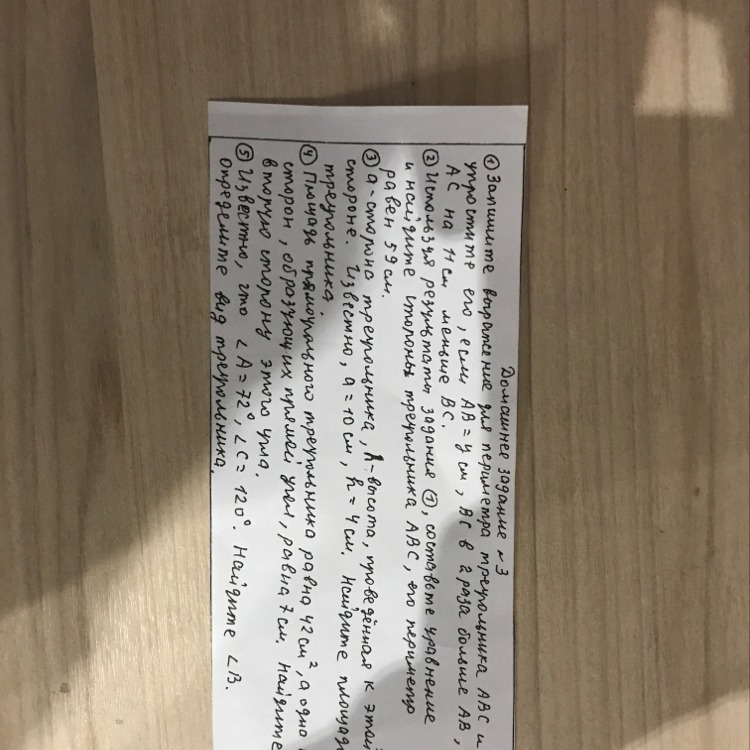 Домашнее задание №3
① Запишите выражение для периметра треугольника ABC и
упростите его, если AB = y см, BC в 2 раза больше AB,
AC на 11 см меньше BC.
② Используя результаты задания ①, составьте уравнение
и найдите стороны треугольника ABC, его периметр
равен 59 см.
③ a-сторона треугольника, h-высота, проведённая к этой
стороне. Известно, a = 10 см, h = 4 см. Найдите площадь
треугольника.
④ Площадь прямоугольного треугольника равна 42 см², а одна
сторон, образующих прямой угол, равна 7 см. Найдите
вторую сторону этого угла.
⑤ Известно, что ∠A = 72°, ∠C = 120°. Найдите ∠B.
Определите вид треугольника.